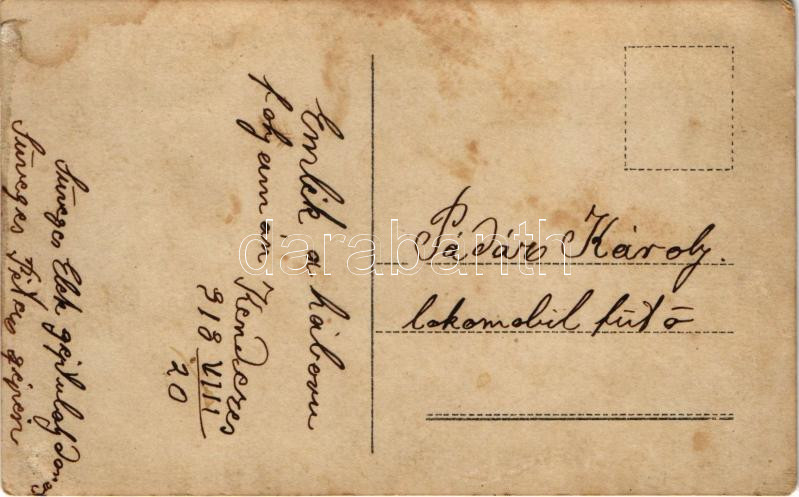 Emlék a háboru
folyamán Kenderes
918 VIII
20
Süveges Elek géptulajdonos
Süveges Titus gépén
Pádár Károly.
lokomobil fűtő
darabanth